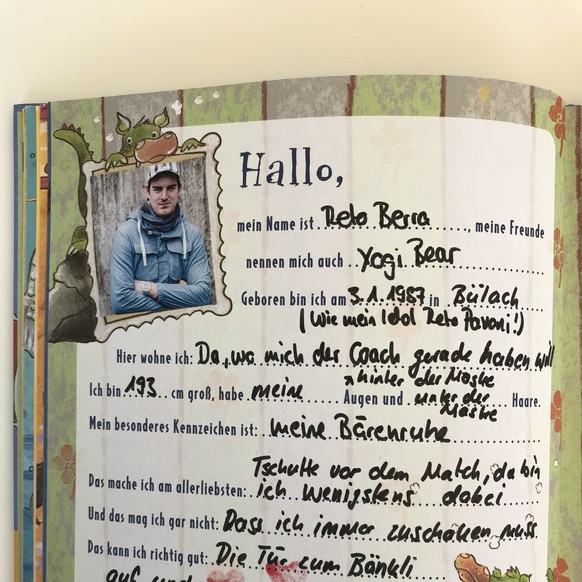 Hallo,
mein Name ist Reto Berra, meine Freunde
nennen mich auch Yogi Bear
Geboren bin ich am 3.1.1987 in Bülach
(Wie mein Idol Reto Pavoni!)
Hier wohne ich: Da, wo mich der Coach gerade haben will
Ich bin 193 cm groß, habe meine hinter der Maske Augen und unter der Maske Haare.
Mein besonderes Kennzeichen ist: meine Bärenruhe
Tschutte vor dem Match, da bin
Das mache ich am allerliebsten: ich wenigstens dabei
Und das mag ich gar nicht: Dass ich immer zuschauen muss
Das kann ich richtig gut: Die Tür zum Bänkli
auf und